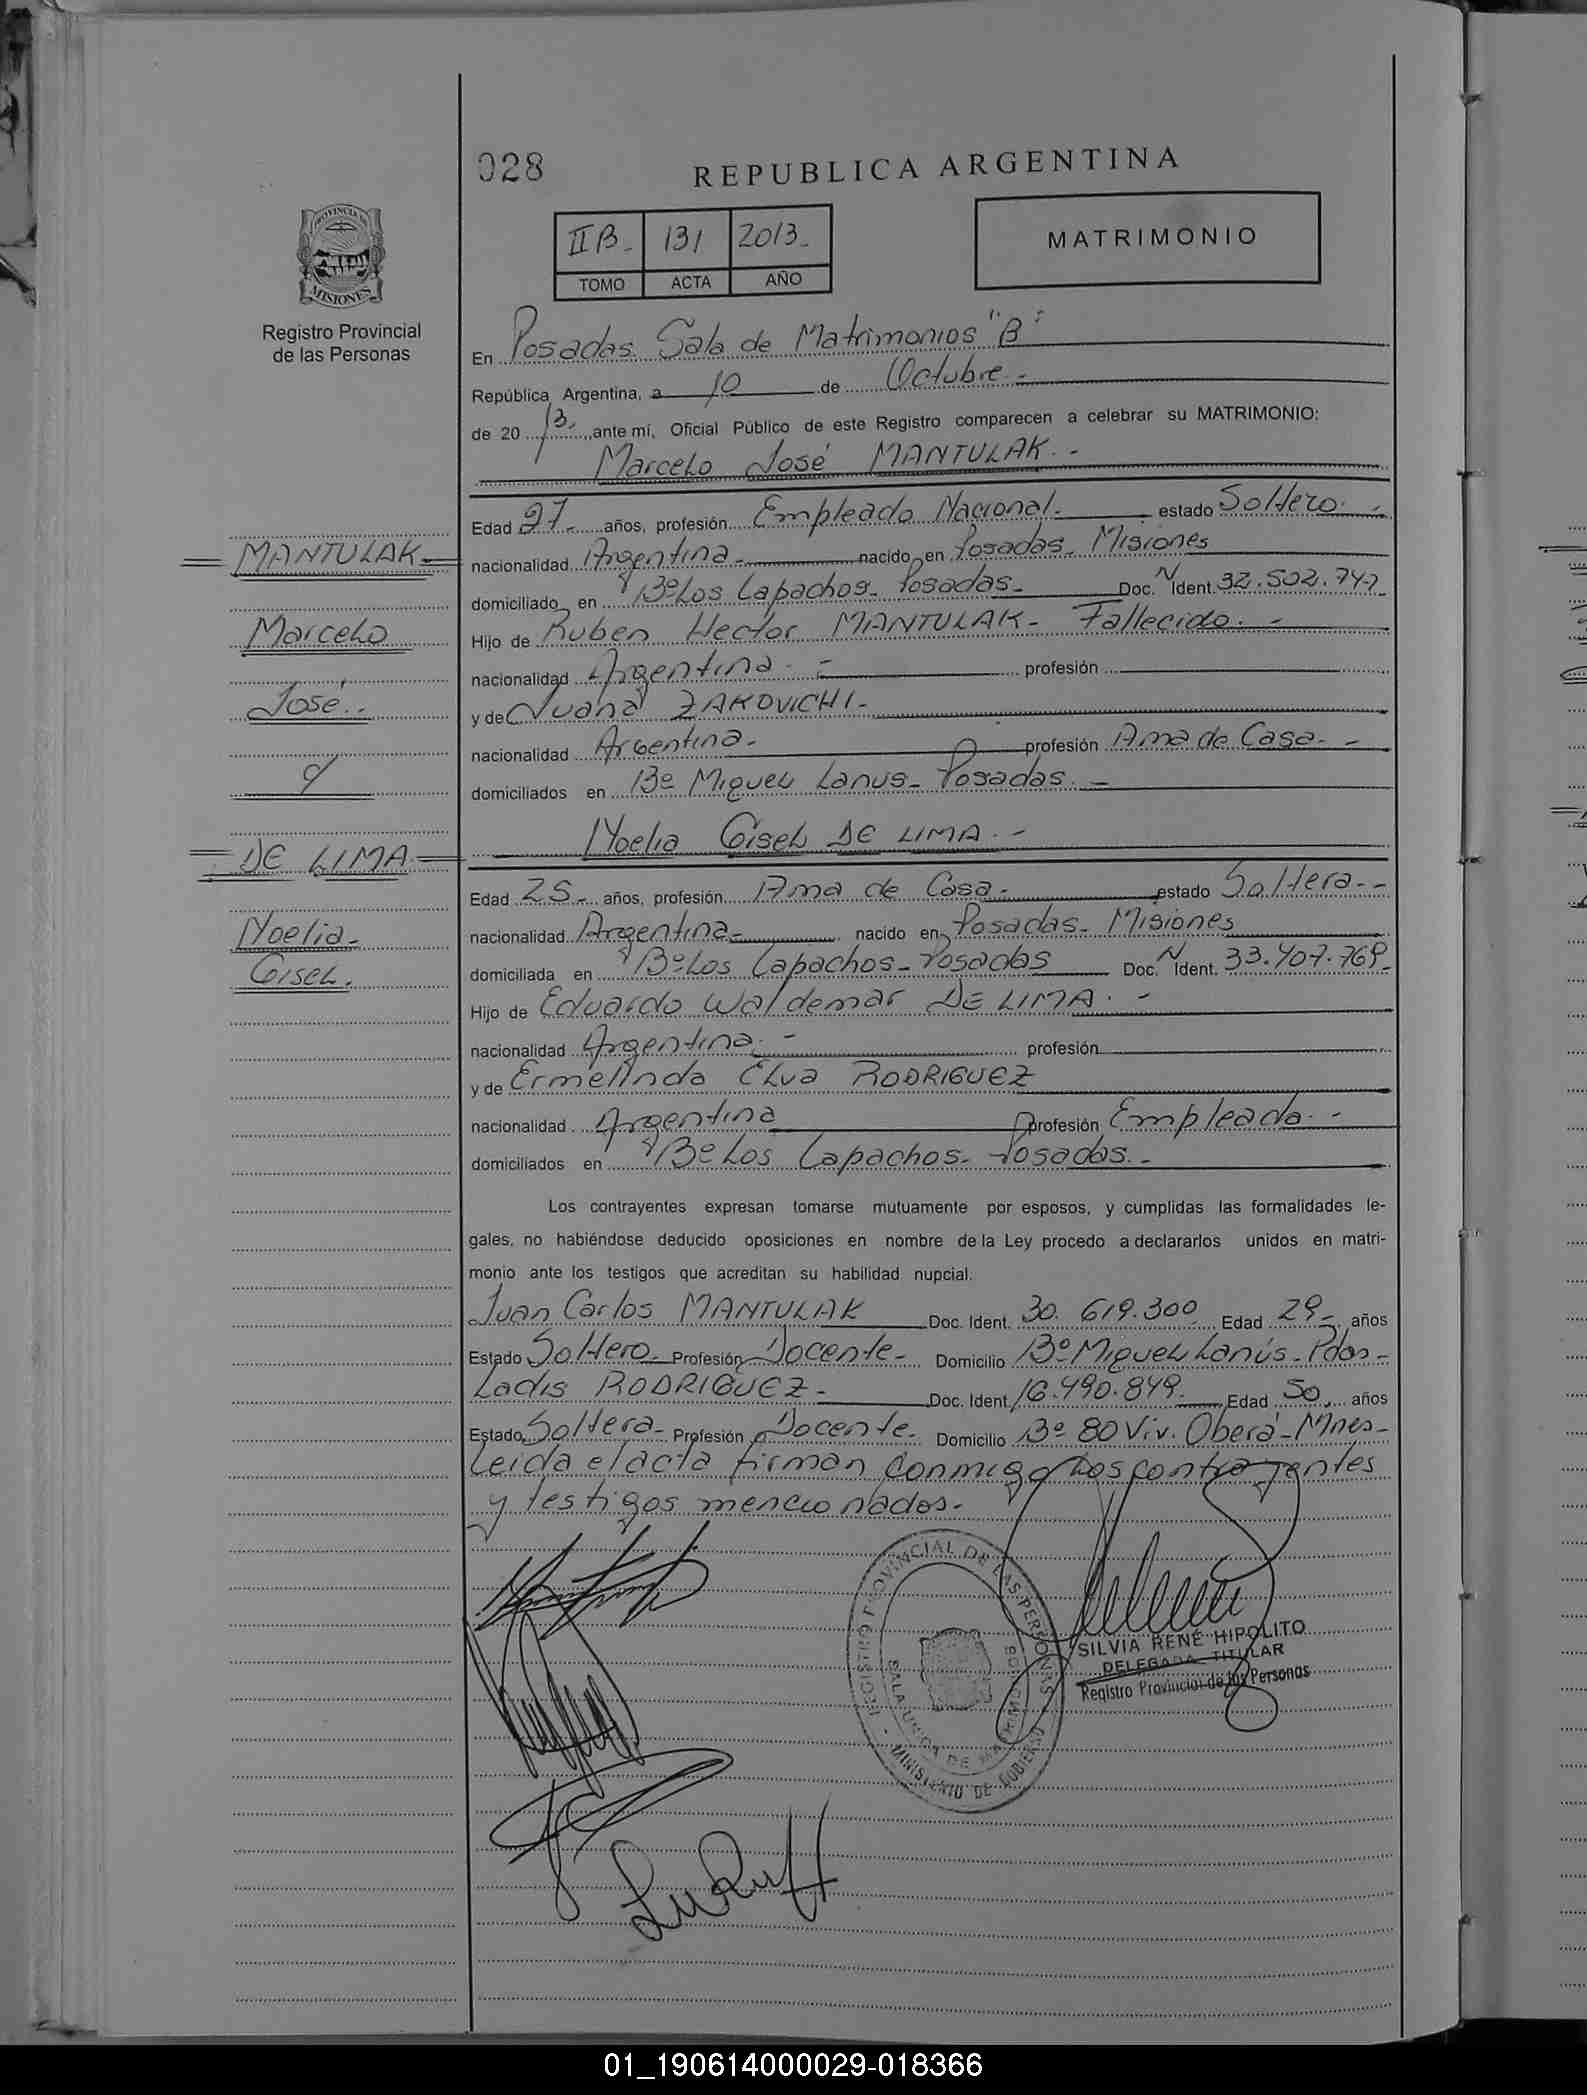 028
REPUBLICA ARGENTINA
II B - 131 2013 -
TOMO ACTA AÑO
MATRIMONIO
PROVINCIA DE
MISIONES
Registro Provincial
de las Personas
En Posadas Sala de Matrimonios "B"
República Argentina, a 10 de Octubre -
de 20 13, ante mí, Oficial Público de este Registro comparecen a celebrar su MATRIMONIO:
Marcelo José MANTULAK. -
Edad 27 - años, profesión Empleado Nacional. estado Soltero. -
nacionalidad Argentina - nacido en Posadas - Misiones
domiciliado en Bº Los Lapachos - Posadas - Doc. N Ident. 32.502.747
Hijo de Ruben Hector MANTULAK - Fallecido. -
nacionalidad Argentina. - profesión
y de Juana ZAKOVICHI -
nacionalidad Argentina - profesión Ama de Casa. -
domiciliados en Bº Miguel Lanus - Posadas. -
Noelia Gisel DE LIMA. -
Edad 25 - años, profesión Ama de Casa - estado Soltera. -
nacionalidad Argentina - nacido en Posadas - Misiones
domiciliada en Bº Los Lapachos - Posadas Doc. N Ident. 33.407.769 -
Hijo de Eduardo Waldemar DE LIMA. -
nacionalidad Argentina. - profesión
y de Ermelinda Elva RODRIGUEZ
nacionalidad Argentina profesión Empleada. -
domiciliados en Bº Los Lapachos - Posadas. -
Los contrayentes expresan tomarse mutuamente por esposos, y cumplidas las formalidades le-
gales, no habiéndose deducido oposiciones en nombre de la Ley procedo a declararlos unidos en matri-
monio ante los testigos que acreditan su habilidad nupcial.
Juan Carlos MANTULAK Doc. Ident. 30.619.300 Edad 29 - años
Estado Soltero - Profesión Docente - Domicilio Bº Miguel Lanús - Pdas -
Ladis RODRIGUEZ - Doc. Ident. 16.490.849 Edad 50 años
Estado Soltera - Profesión Docente - Domicilio Bº 80 Viv. Oberá - Mnes -
Leida el acta firman conmigo los contrayentes
y testigos mencionados -
MANTULAK
Marcelo
José
y
DE LIMA
Noelia -
Gisel.
REGISTRO PROVINCIAL DE LAS PERSONAS
MINISTERIO DE GOBIERNO
SALA UNICA DE MATRIMONIOS
SILVIA RENÉ HIPOLITO
DELEGADA TITULAR
Registro Provincial de las Personas
01_190614000029-018366